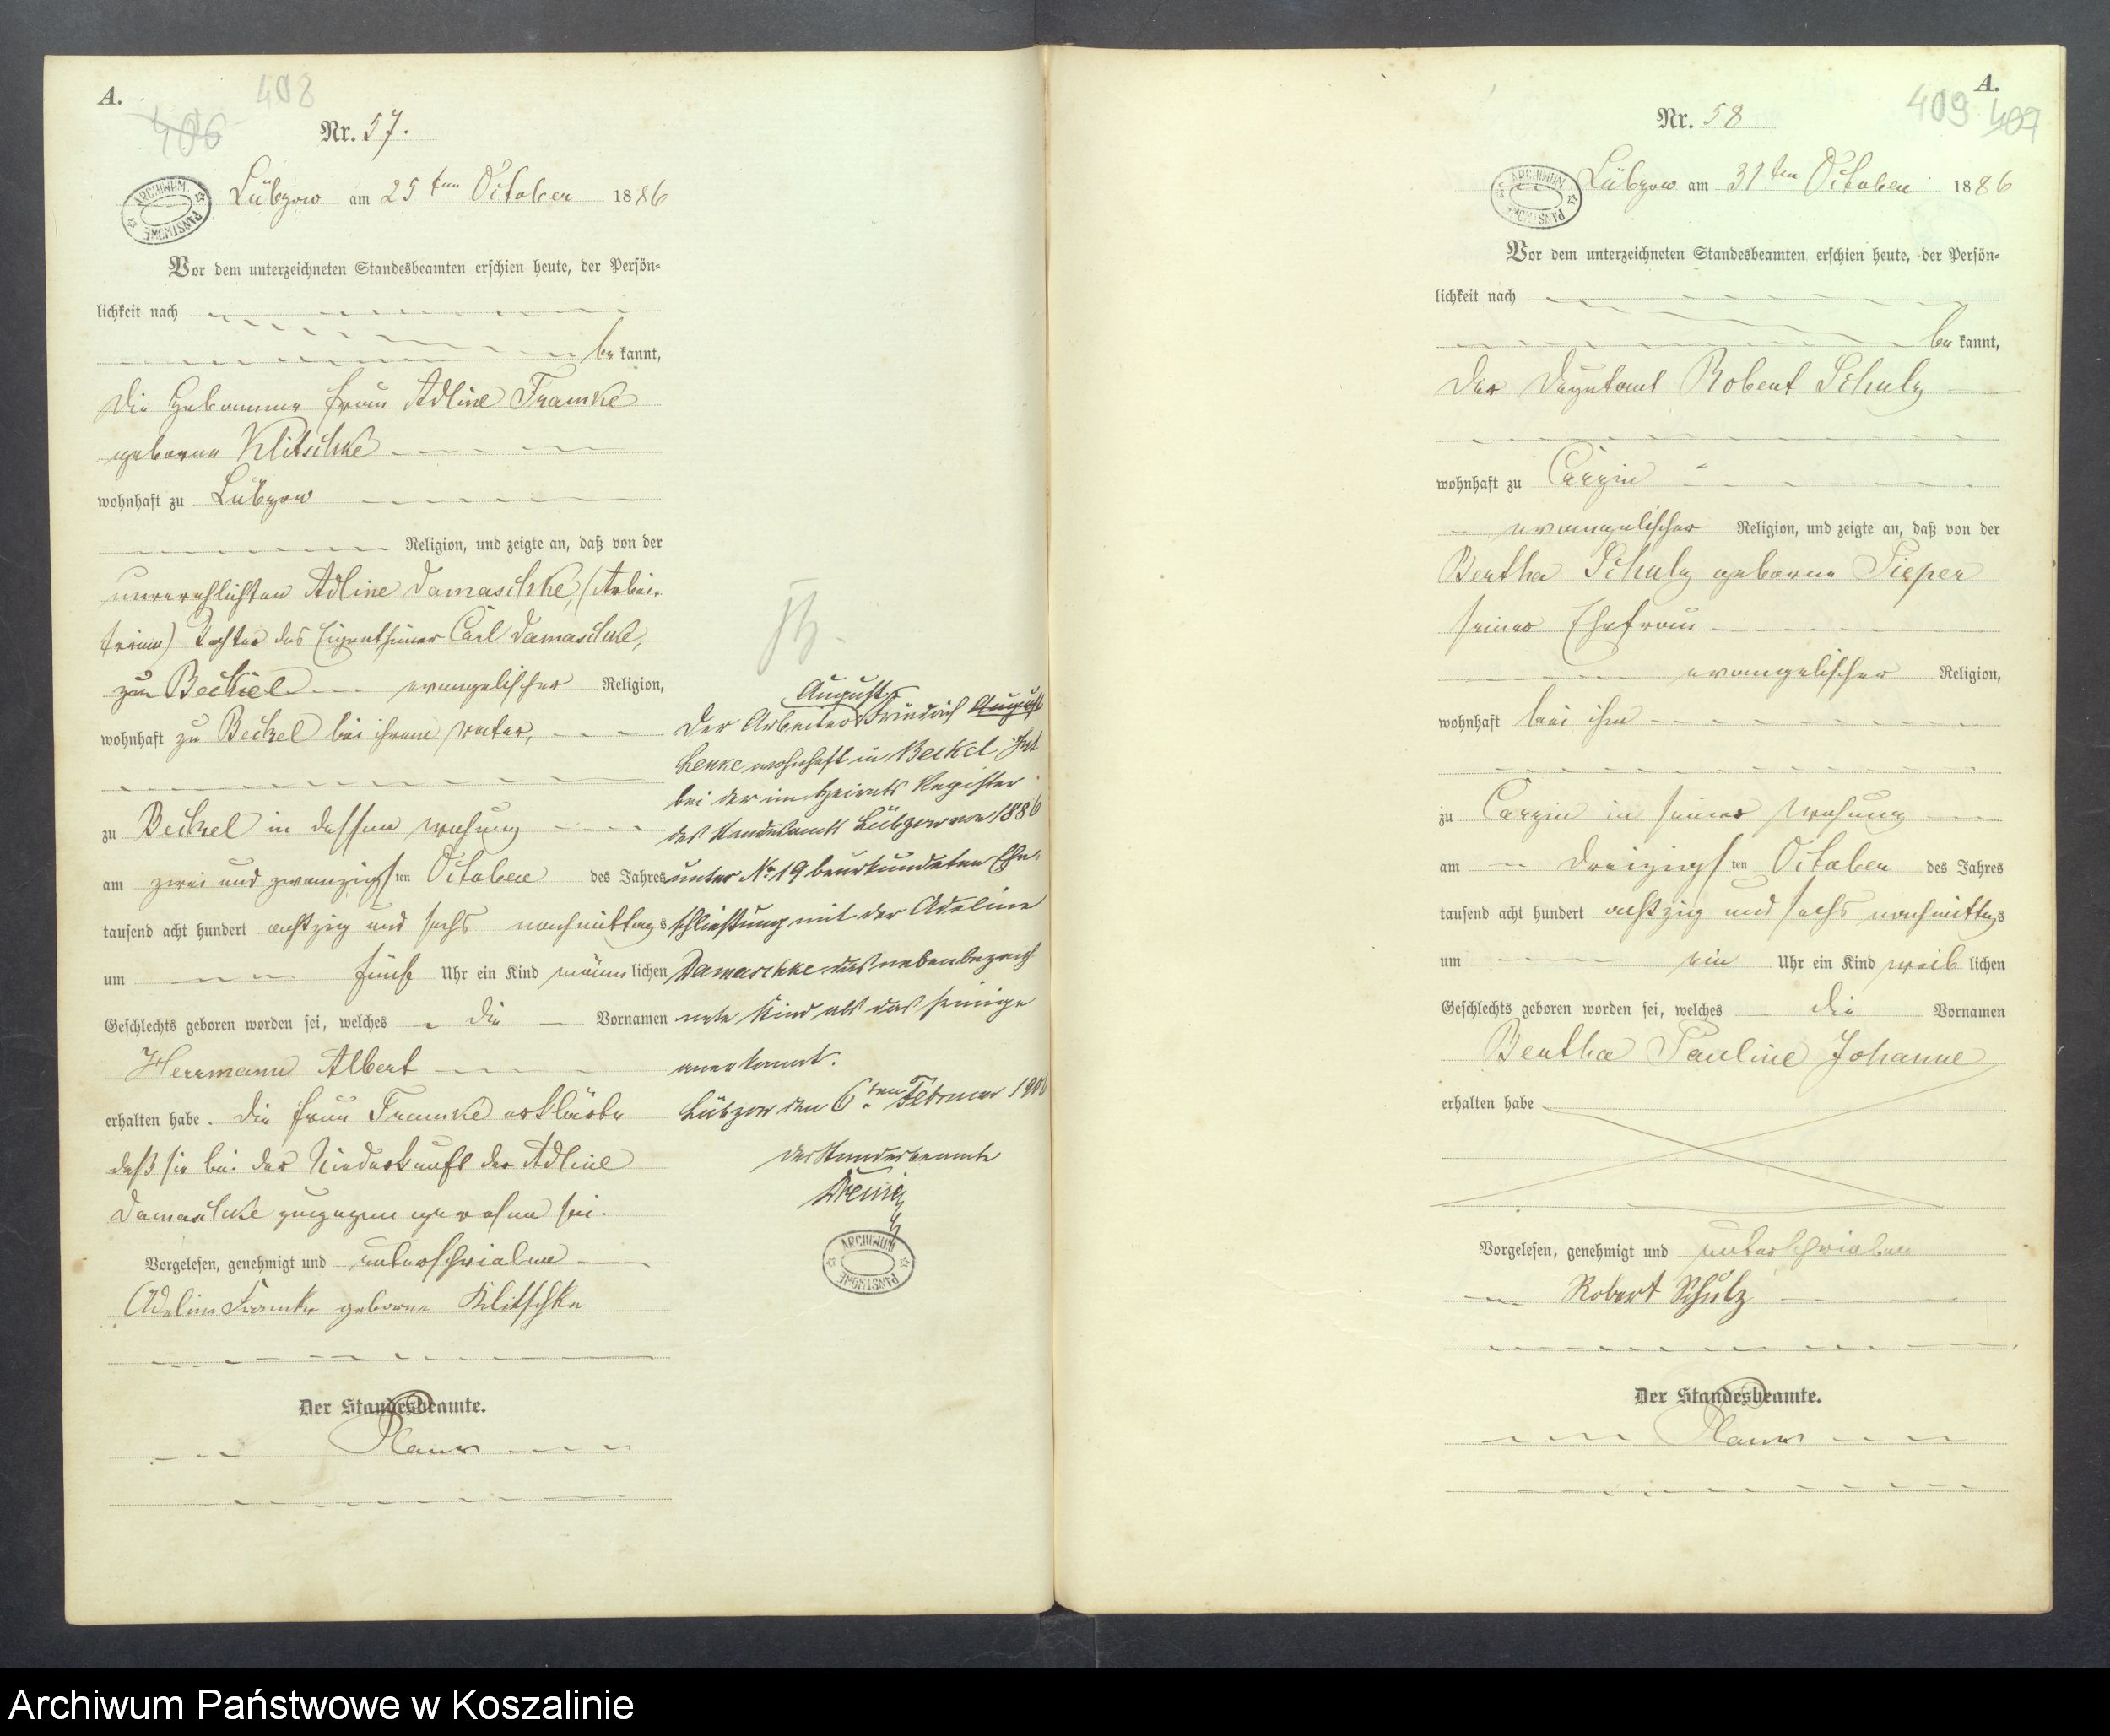 A.
408
406
Nr. 57.
ARCHIWUM PAŃSTWOWE
Lübzow am 25ten October 1886
Vor dem unterzeichneten Standesbeamten erschien heute, der Persön=
lichkeit nach
bekannt,
die Hebamme Frau Adline Framke
geborne Klitschke
wohnhaft zu Lübzow
Religion, und zeigte an, daß von der
unverehlichten Adline Damaschke, (Arbei-
terinn) Tochter des Eigenthümer Carl Damaschke,
zu Beckel evangelischer Religion,
wohnhaft zu Beckel bei ihrem Vater,
zu Beckel in dessen Wohnung
am zwei und zwanzigsten October des Jahres
tausend acht hundert achtzig und sechs nachmittags
um fünf Uhr ein Kind männlichen
Geschlechts geboren worden sei, welches die Vornamen
Herrmann Albert
erhalten habe. Die Frau Framke erklärte
daß sie bei der Niederkunft der Adline
Damaschke zugegen gewesen sei.
Vorgelesen, genehmigt und unterschrieben
Adeline Framke geborne Klitschke
Der Standesbeamte.
August
Der Arbeiter Friedrich August
Henke wohnhaft in Beckel hat
bei der im Heirats Register
des Standesamts Lübzow von 1886
unter No 19 beurkundeten Ehe-
schließung mit der Adeline
Damaschke das nebenbezeich
nete Kind als das seinige
anerkannt.
Lübzow den 6ten Februar 1906
Der Standesbeamte
ARCHIWUM PAŃSTWOWE
A.
409 407
Nr. 58
ARCHIWUM PAŃSTWOWE
Lübzow am 31ten October 1886
Vor dem unterzeichneten Standesbeamten erschien heute, der Persön=
lichkeit nach
bekannt,
Der Deputant Robert Schulz
wohnhaft zu Carzin
evangelischer Religion, und zeigte an, daß von der
Bertha Schulz geborne Pieper
seiner Ehefrau
evangelischer Religion,
wohnhaft bei ihm
zu Carzin in seiner Wohnung
am dreizigsten October des Jahres
tausend acht hundert achtzig und sechs nachmittags
um ein Uhr ein Kind weiblichen
Geschlechts geboren worden sei, welches die Vornamen
Bertha Pauline Johanne
erhalten habe
Vorgelesen, genehmigt und unterschrieben
Robert Schulz
Der Standesbeamte.
Archiwum Państwowe w Koszalinie